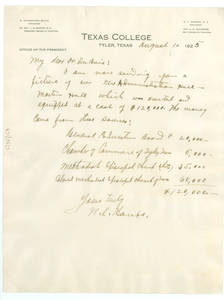 TEXAS COLLEGE
TYLER, TEXAS
OFFICE OF THE PRESIDENT
August 10 1925
My dear Dr. DuBois:
I am now sending you a
picture of our New Administration Hall -
Martin Hall which was erected and
equipped at a cost of $120,000. The money
came from these sources:
General Education Board $ 20,000 -
Chamber of Commerce of Tyler Tex 5,000 -
Methodist Episcopal Church 35,000
Colored Methodist Episcopal Church 60,000
$120,000 -
Yours truly